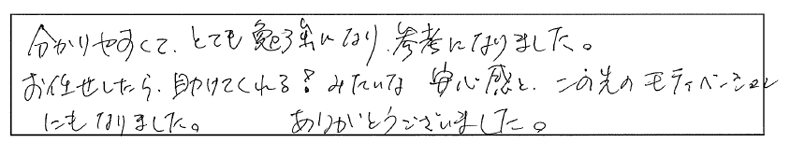 分かりやすくて、とても勉強になり、参考になりました。
お任せしたら、助けてくれる?みたいな 安心感と、この先のモティベーション
にもなりました。 ありがとうございました。